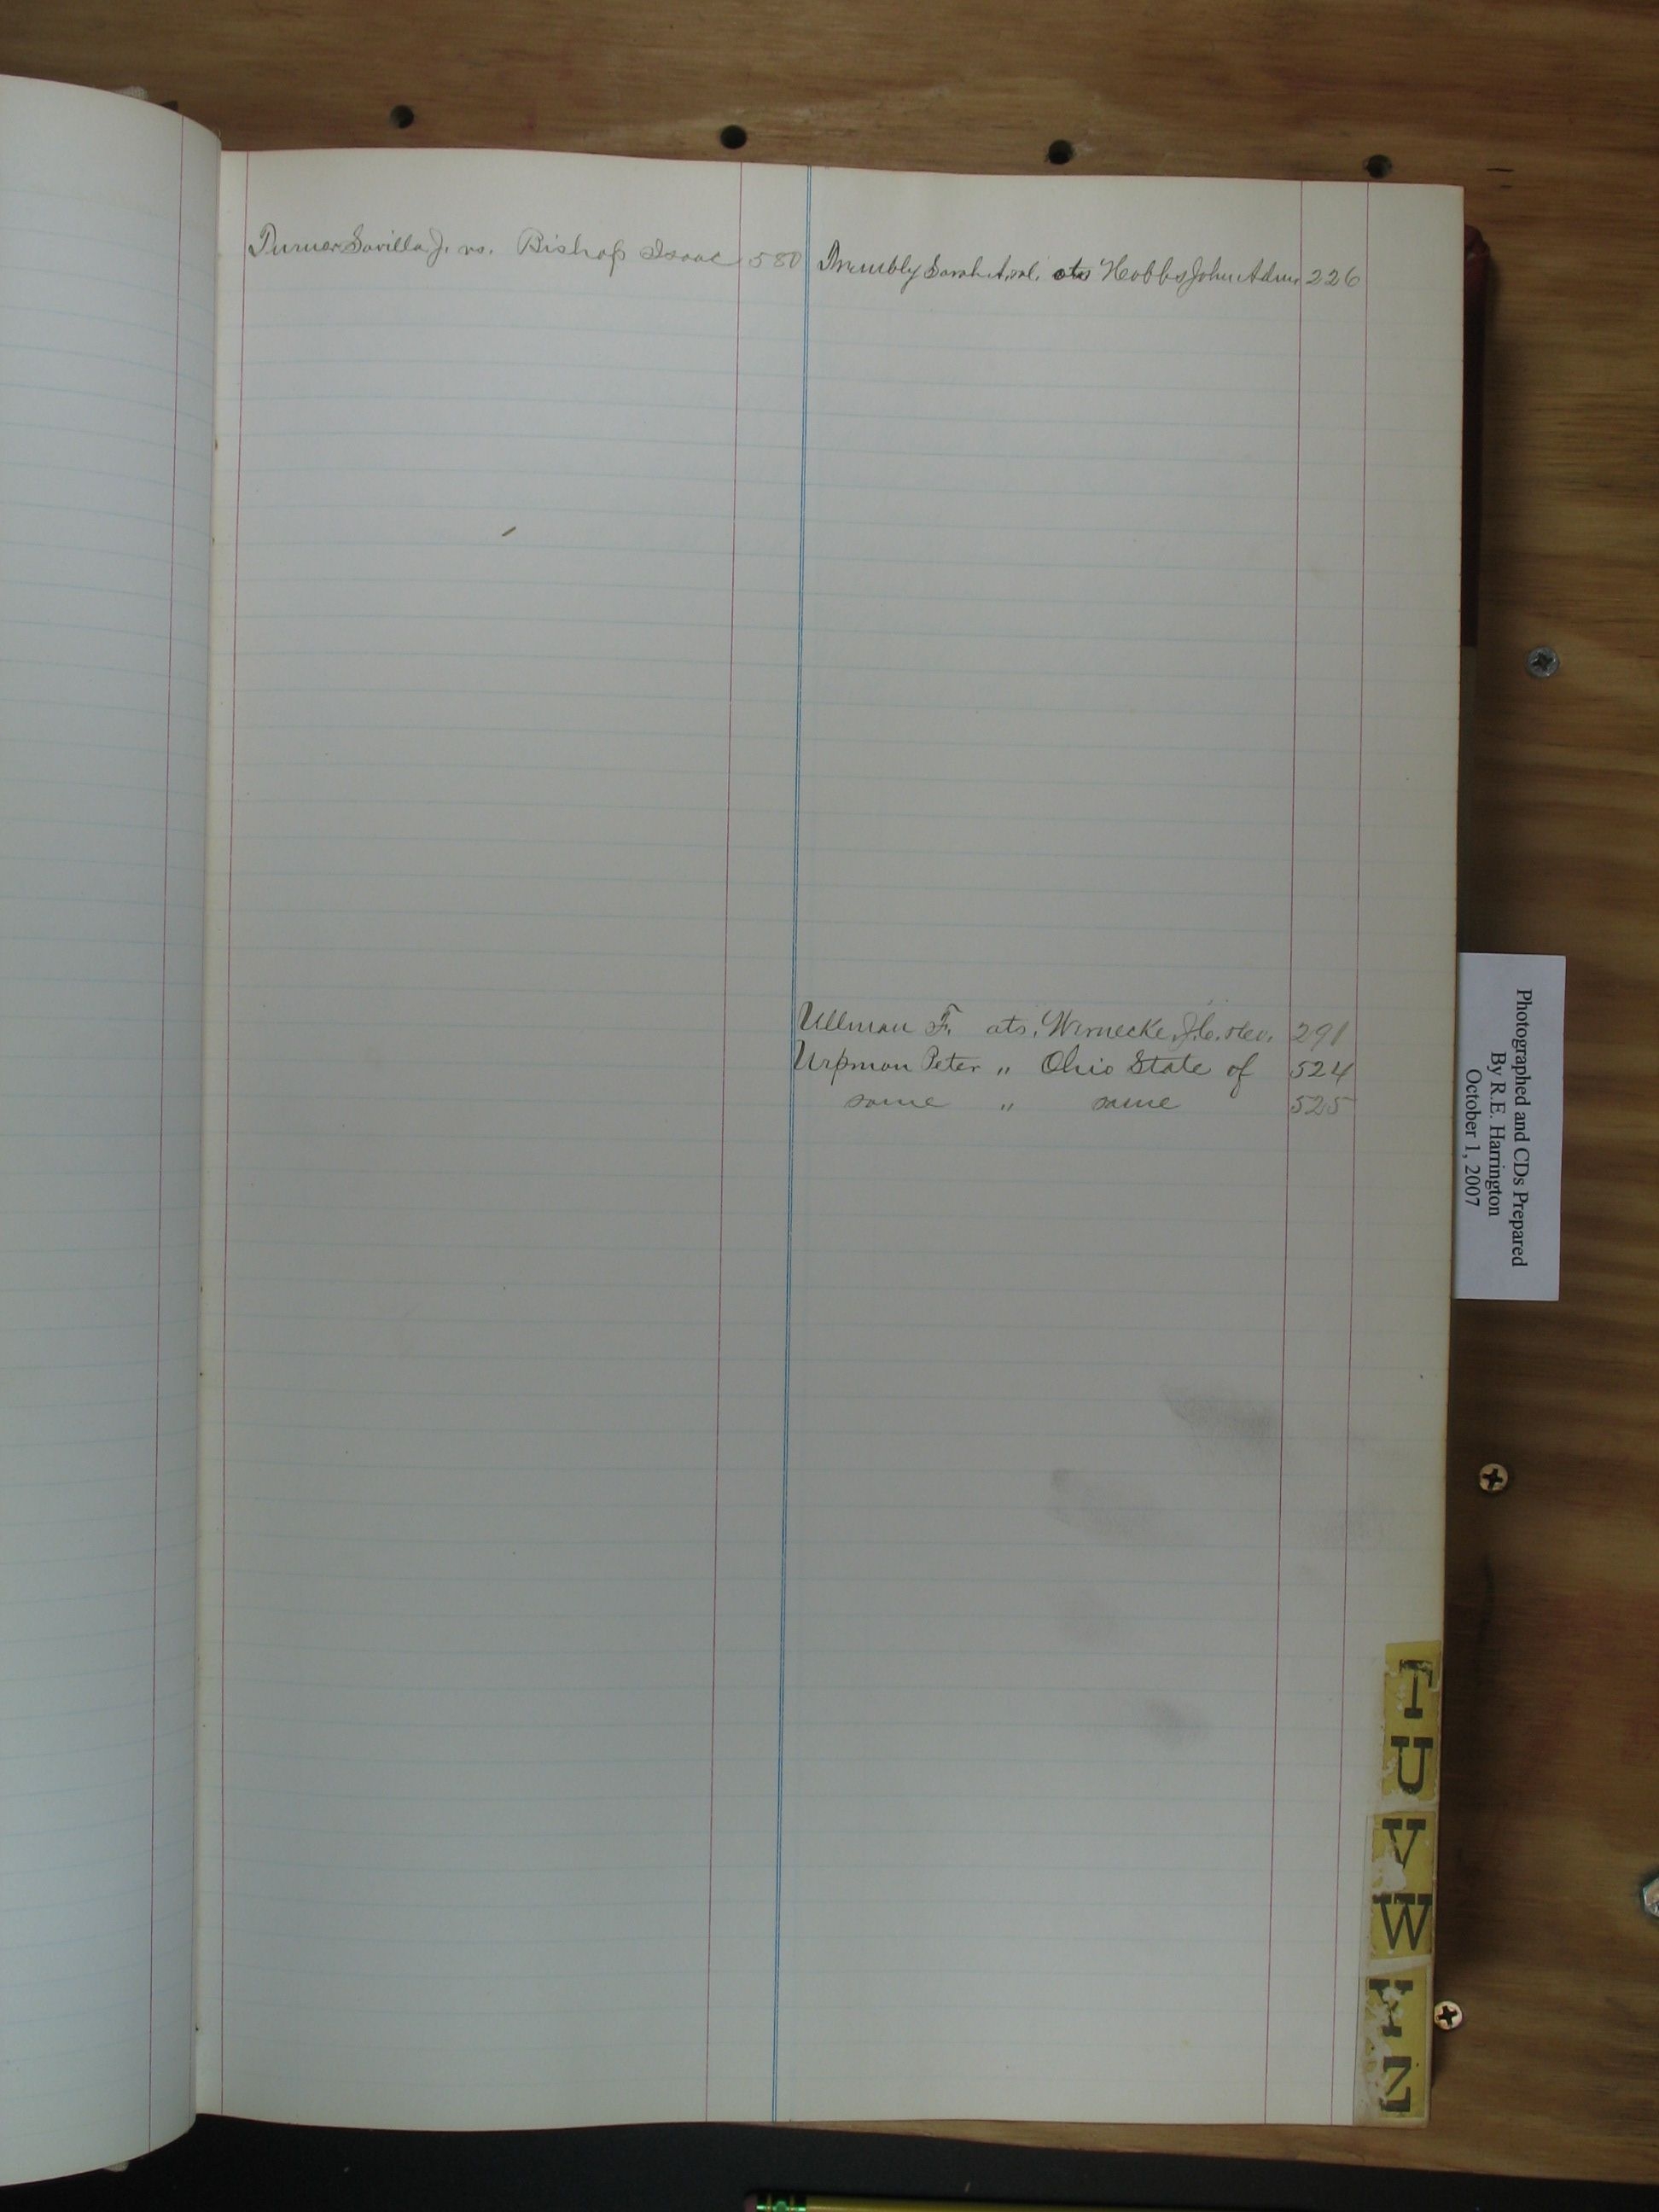 Turner Savilla J. vs. Bishop Isaac 580
Trembly Sarah A. et al. ats Hobbs John Admr 226
Ullman F. ats. Wernecke, J.C. Rev. 291
Urpman Peter " Ohio State of 524
same " same 525
Photographed and CDs Prepared
By R.E. Harrington
October 1, 2007
T
U
V
W
Y
Z